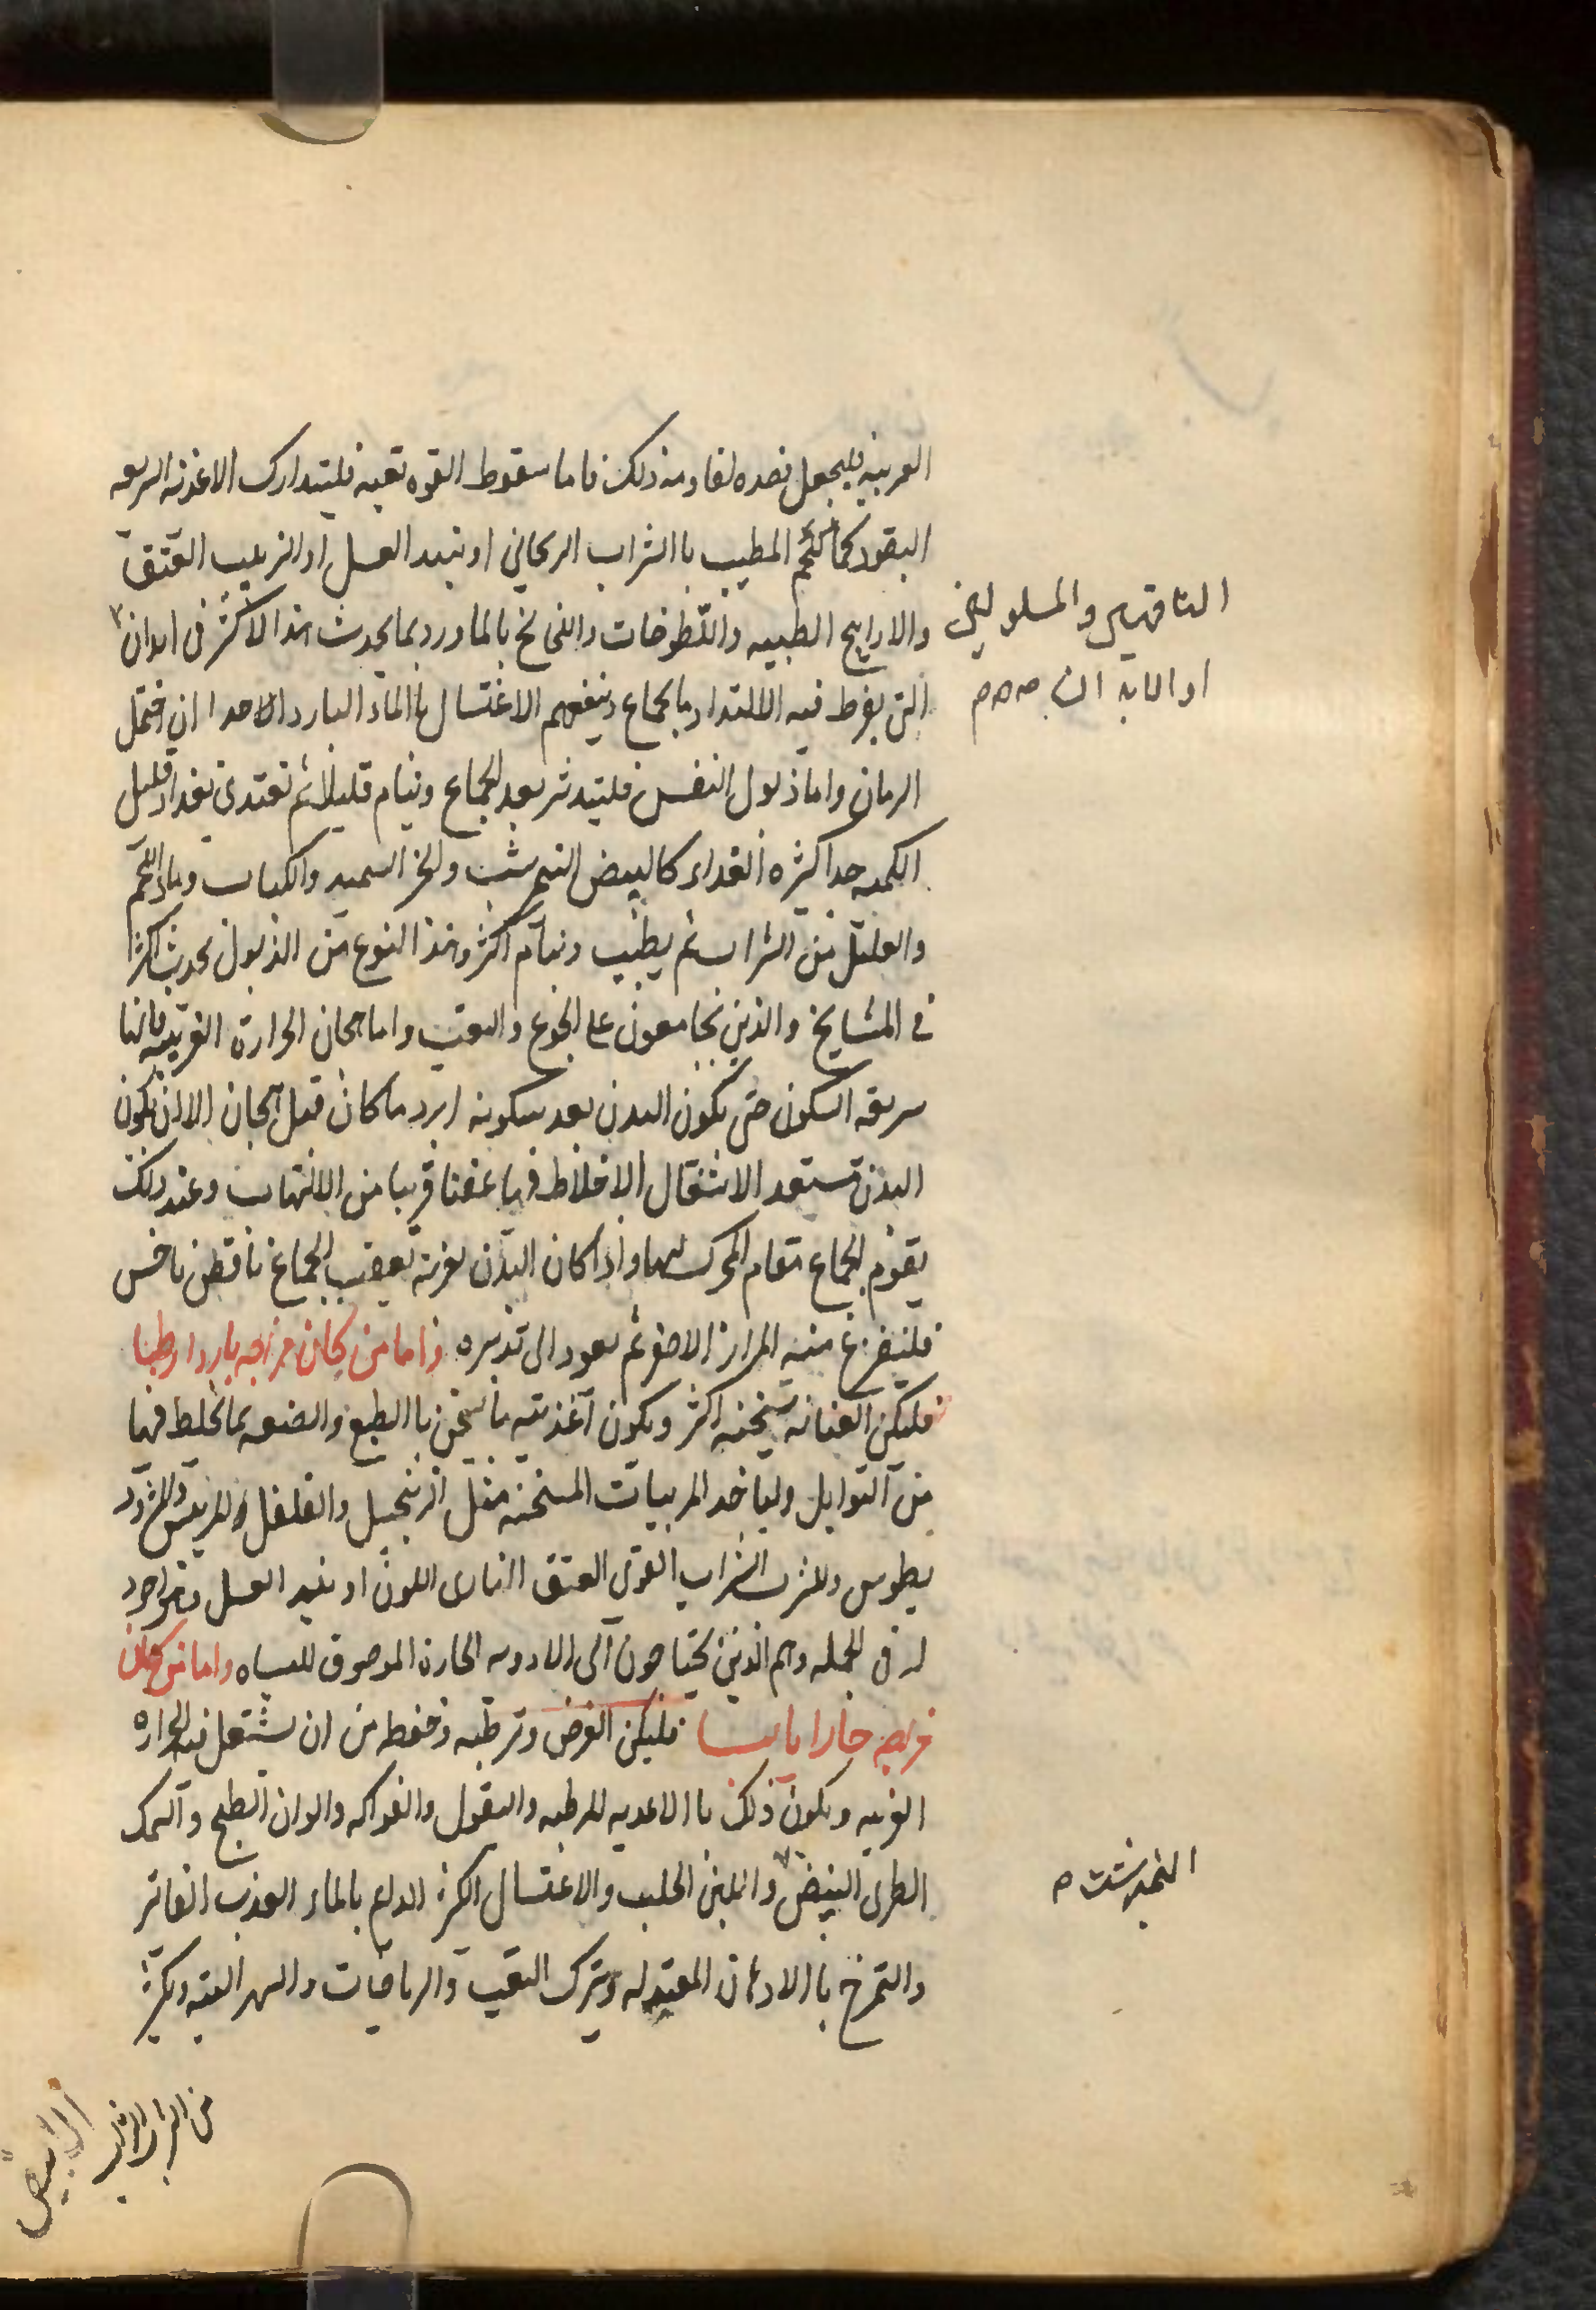 الغريبة فليجعل قصده لمقاومة ذلك فاما سقوط القوه بعقبه فليتدارك الاغذيه السريعه
النفود كماء اللحم المطيب باالشراب الريحاني او نبيد العسل او الزبيب العتيق
والاراييح الطيبه واللطوخات والنضايخ بالماورد بما يحدث هذا الاكثر في ابدان
الناقهين والمسلولين
التى يفرط فيه الالتداد بالجماع وينفعهم الاغتسال باالماء البارد جدا ان احتمل
او الابدان
الزمان واما ذبول النفس فليتدثر بعد الجماع وينام قليلا ثم تغتدى بغداء قليل
الكميه جدا كثيره الغداء كالبيض النيمرشت والخبز السميد والكباب وماء اللحم
والقليل من الشراب ثم يطيب وينام اكثر وهذا النوع من الذبول يحدث اكثرا
فى المشايخ والذين يجامعون على الجوع والتعب واما هيجان الحرارة الغريبه فانها
سريعه السكون حتى يكون البدن بعد سكونه ابرد ما كان قبل هيجان الا ان يكون
البدن مستعد الاشتعال الاخلاط فيها عفنا قريبا من الالتهاب وعند ذلك
يقوم الجماع مقام المحرك لها واذا كان البدن يعرته بعقيب الجماع نافض ناخس
فليستفرغ منه المرار الاصفر ثم يعود الى تدبيره واما من كان مزاجه باردا رطبا
فليكن العنايه بتسخينه اكثر ويكون اغذيته ما يسخن باالطبع والصنعه بما يخلط فيها
من التوابل ولياخد المربيات المسخنه مثل الزنجبيل والفلفل والمريقس والمثرود
يطوس وللشرب الشراب القوى العتيق النارى اللون او نبيد العسل وهو اجود
له فى الجمله وهم الذين يحتاجون الى الادويه الحارة الموصوف للباه واما من كان
مزاجه حارا يابسا فليكن الغرض وترطيبه وحفظه من ان يشتعل فيه الحراره
الغريبه ويكون ذلك باالاغديه المرطبه والبقول والفواكه والوان الطبيخ والسمك
الطرى البيض واللبن الحليب والاغتسال الكثير الدايم بالماء العذب الفاتر
النيمرشت
والتمرخ باالادهان المعتدله وبترك التعب والرياضات والسهر البته ويكثر
من الشراب
الابيض